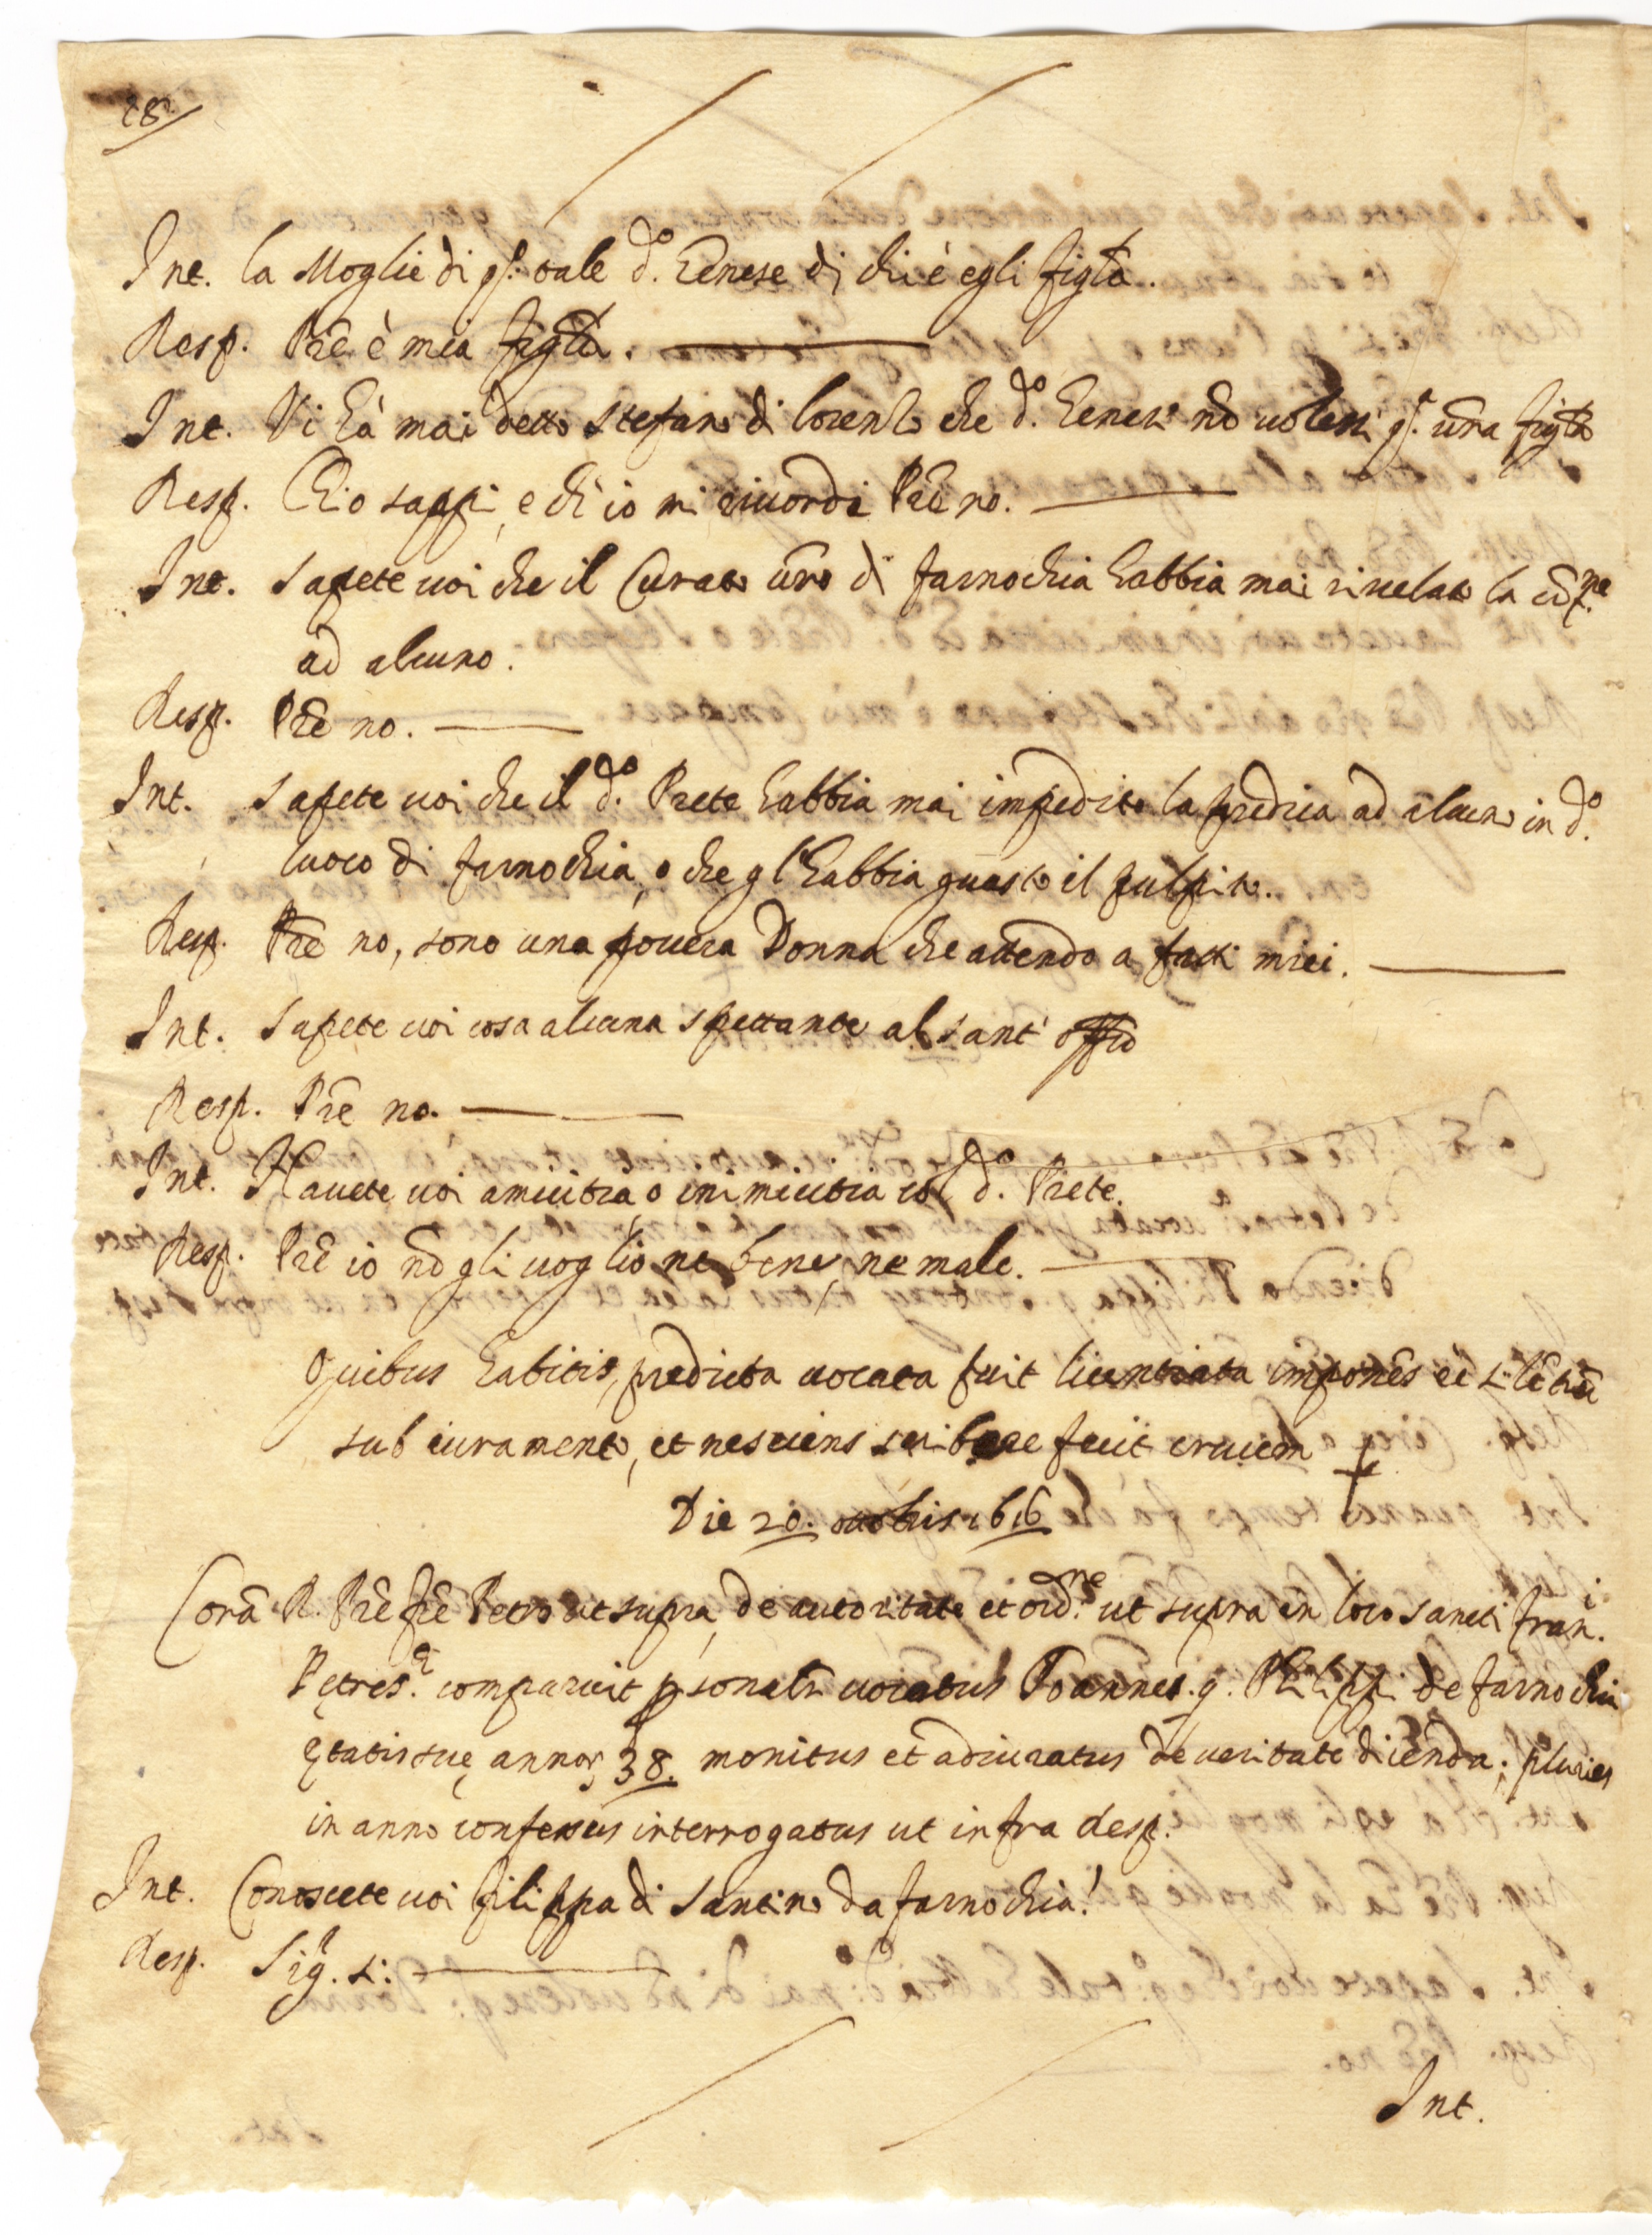 28
Int. la Moglie di qsto tale do. Genese di chi è egli figla.
Resp. Pre è mia figla.
Int. Vi hà mai detto Stefano di Lorenzo che do. Genese nō volessi vra figla
Resp. Ch'io sappi, e ch'io mi ricordi Prē no.
Int. Sapete voi che il Curato vrō di farnochia habbia mai rivelato la cōfne
ad alcuno.
Resp. Prē no.
Int. Sapete voi che il do. Prete habbia mai impedito la predica ad alcuno in do.
luoco di farnochia, o che gl'habbia guasto il pulpito.
Resp. Prē no, sono una povera Donna che attendo a fatti miei.
Int. Sapete voi cosa alcuna spettante al sant' offio
Resp. Prē no.
Int. Havete voi amicitia o inimicitia col do. Prete.
Resp. Prē io nō gli voglio ne bene, ne male.
Quibus habitis, predicta vocata fuit licentiata imponēs ei silētiū
sub iuramento, et nesciens scribere fecit crucem †
Die 20. octobris 1616
Corā R. Prē frē Petro ut supra, de autoritate et ordne. ut supra in loco sancti frani.
Petres.e comparuit psonalr vocatus Joannes q. Philippi de farnochia
ętatis suę annor 38. monitus et adiuratus de veritate dicenda; pluries
in anno confessus interrogatus ut infra Resp.
Int. Conoscete voi filippa di Santino da farnochia!
Resp. Sigr. si.
Int.